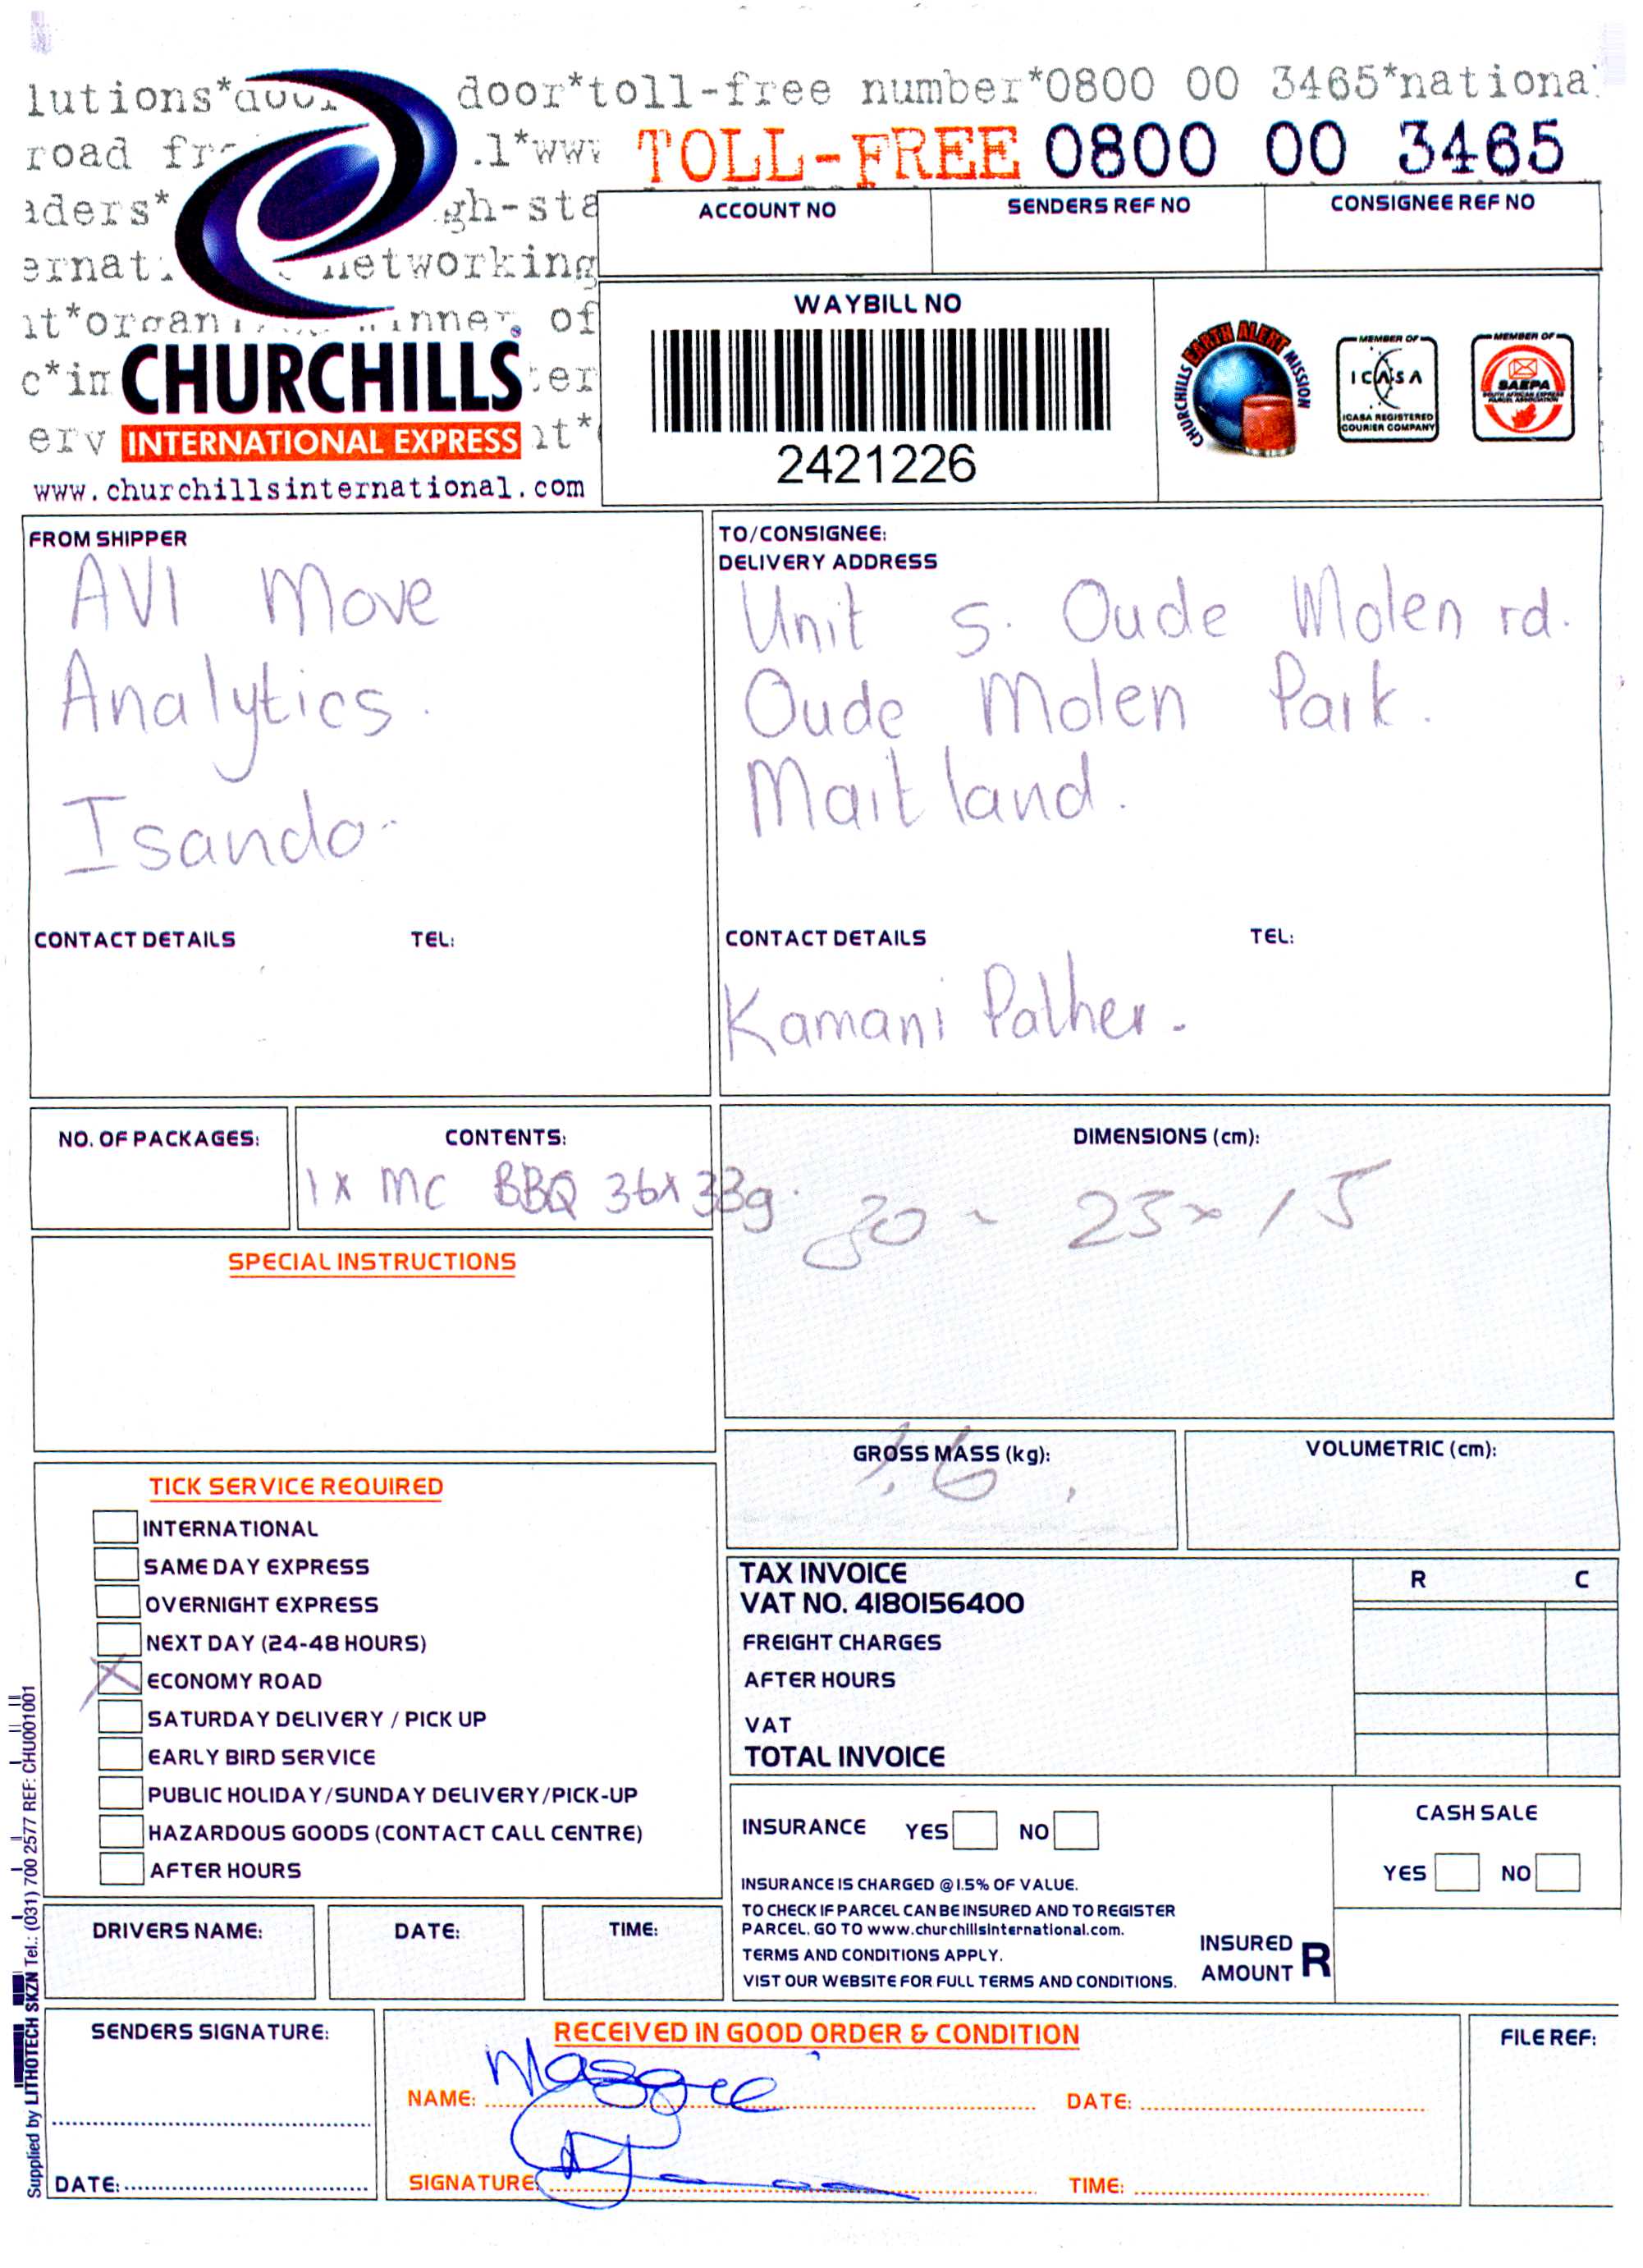 lutions*door door*toll-free number*0800 00 3465*national
road fr .1*www TOLL-FREE 0800 00 3465
aders* gh-sta
ernati networking
nt*organi inner of
c*in ter
erv nt*
CHURCHILLS
INTERNATIONAL EXPRESS
www.churchillsinternational.com
ACCOUNT NO SENDERS REF NO CONSIGNEE REF NO
WAYBILL NO
2421226
CHURCHILLS EARTH ALERT MISSION
MEMBER OF
ICASA
ICASA REGISTERED
COURIER COMPANY
MEMBER OF
SAEPA
SOUTH AFRICAN EXPRESS
PARCEL ASSOCIATION
FROM SHIPPER
AVI Move
Analytics.
Isando.
CONTACT DETAILS TEL:
TO/CONSIGNEE:
DELIVERY ADDRESS
Unit 5. Oude Molen rd.
Oude Molen Park.
Maitland.
CONTACT DETAILS TEL:
Kamani Pather.
NO. OF PACKAGES:
CONTENTS:
1 x MC BBQ 36x33g.
DIMENSIONS (cm):
30 x 23 x 15
SPECIAL INSTRUCTIONS
GROSS MASS (kg):
1.6
VOLUMETRIC (cm):
TICK SERVICE REQUIRED
INTERNATIONAL
SAME DAY EXPRESS
OVERNIGHT EXPRESS
NEXT DAY (24-48 HOURS)
X ECONOMY ROAD
SATURDAY DELIVERY / PICK UP
EARLY BIRD SERVICE
PUBLIC HOLIDAY/SUNDAY DELIVERY/PICK-UP
HAZARDOUS GOODS (CONTACT CALL CENTRE)
AFTER HOURS
TAX INVOICE R C
VAT NO. 4180156400
FREIGHT CHARGES
AFTER HOURS
VAT
TOTAL INVOICE
INSURANCE YES NO
INSURANCE IS CHARGED @1.5% OF VALUE.
TO CHECK IF PARCEL CAN BE INSURED AND TO REGISTER
PARCEL. GO TO www.churchillsinternational.com.
TERMS AND CONDITIONS APPLY.
VIST OUR WEBSITE FOR FULL TERMS AND CONDITIONS.
CASH SALE
YES NO
INSURED
AMOUNT R
DRIVERS NAME: DATE: TIME:
SENDERS SIGNATURE:
DATE:
RECEIVED IN GOOD ORDER & CONDITION
NAME: Maggie DATE:
SIGNATURE: TIME:
FILE REF:
Supplied by LITHOTECH SKZN Tel.: (031) 700 2577 REF: CHU001001